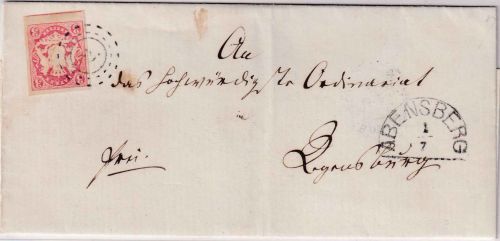 An
das Hochwürdigste Ordinariat
in
frei.
Regensburg
ABENSBERG
1
7